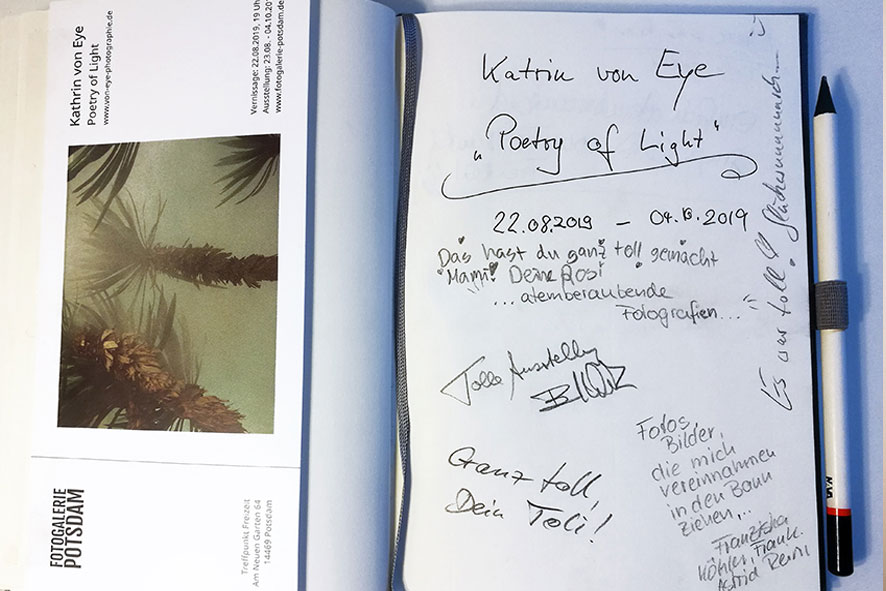 Kathrin von Eye
Poetry of Light
www.von-eye-photographie.de
Vernissage: 22.08.2019, 19 Uh
Ausstellung: 23.08. - 04.10.201
www.fotogalerie-potsdam.de
FOTOGALERIE
POTSDAM
Treffpunkt Freizeit
Am Neuen Garten 64
14469 Potsdam
Katrin von Eye
„Poetry of Light“
22.08.2019 – 04.10.2019
Das hast du ganz toll gemacht
Mami! Deine
...atemberaubende
Fotografien..."
Tolle Ausstellung
Ganz toll,
Dein Toli!
Fotos,
Bilder,
die mich
vereinnahmen
in den Bann
ziehen,...
Franziska
Köhler, Frank.
Astrid
Es war toll!